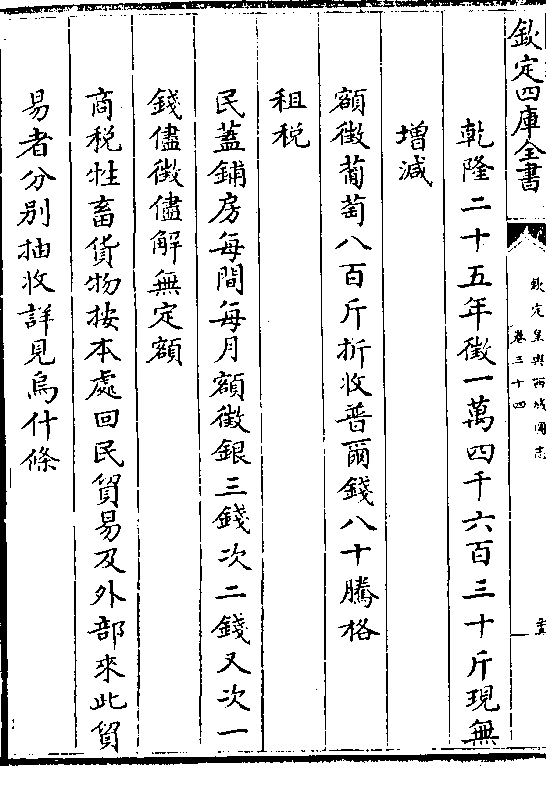 欽定四庫全書
欽定皇輿西域圖志
卷三十四
乾隆二十五年徵一萬四千六百三十斤現無
增減
額徵葡萄八百斤折收普爾錢八十騰格
租税
民蓋鋪房每間每月額徵銀三錢次二錢又次一
錢儘徵儘解無定額
商税牲畜貨物按本處回民貿易及外部來此貿
易者分别抽收詳見烏什條